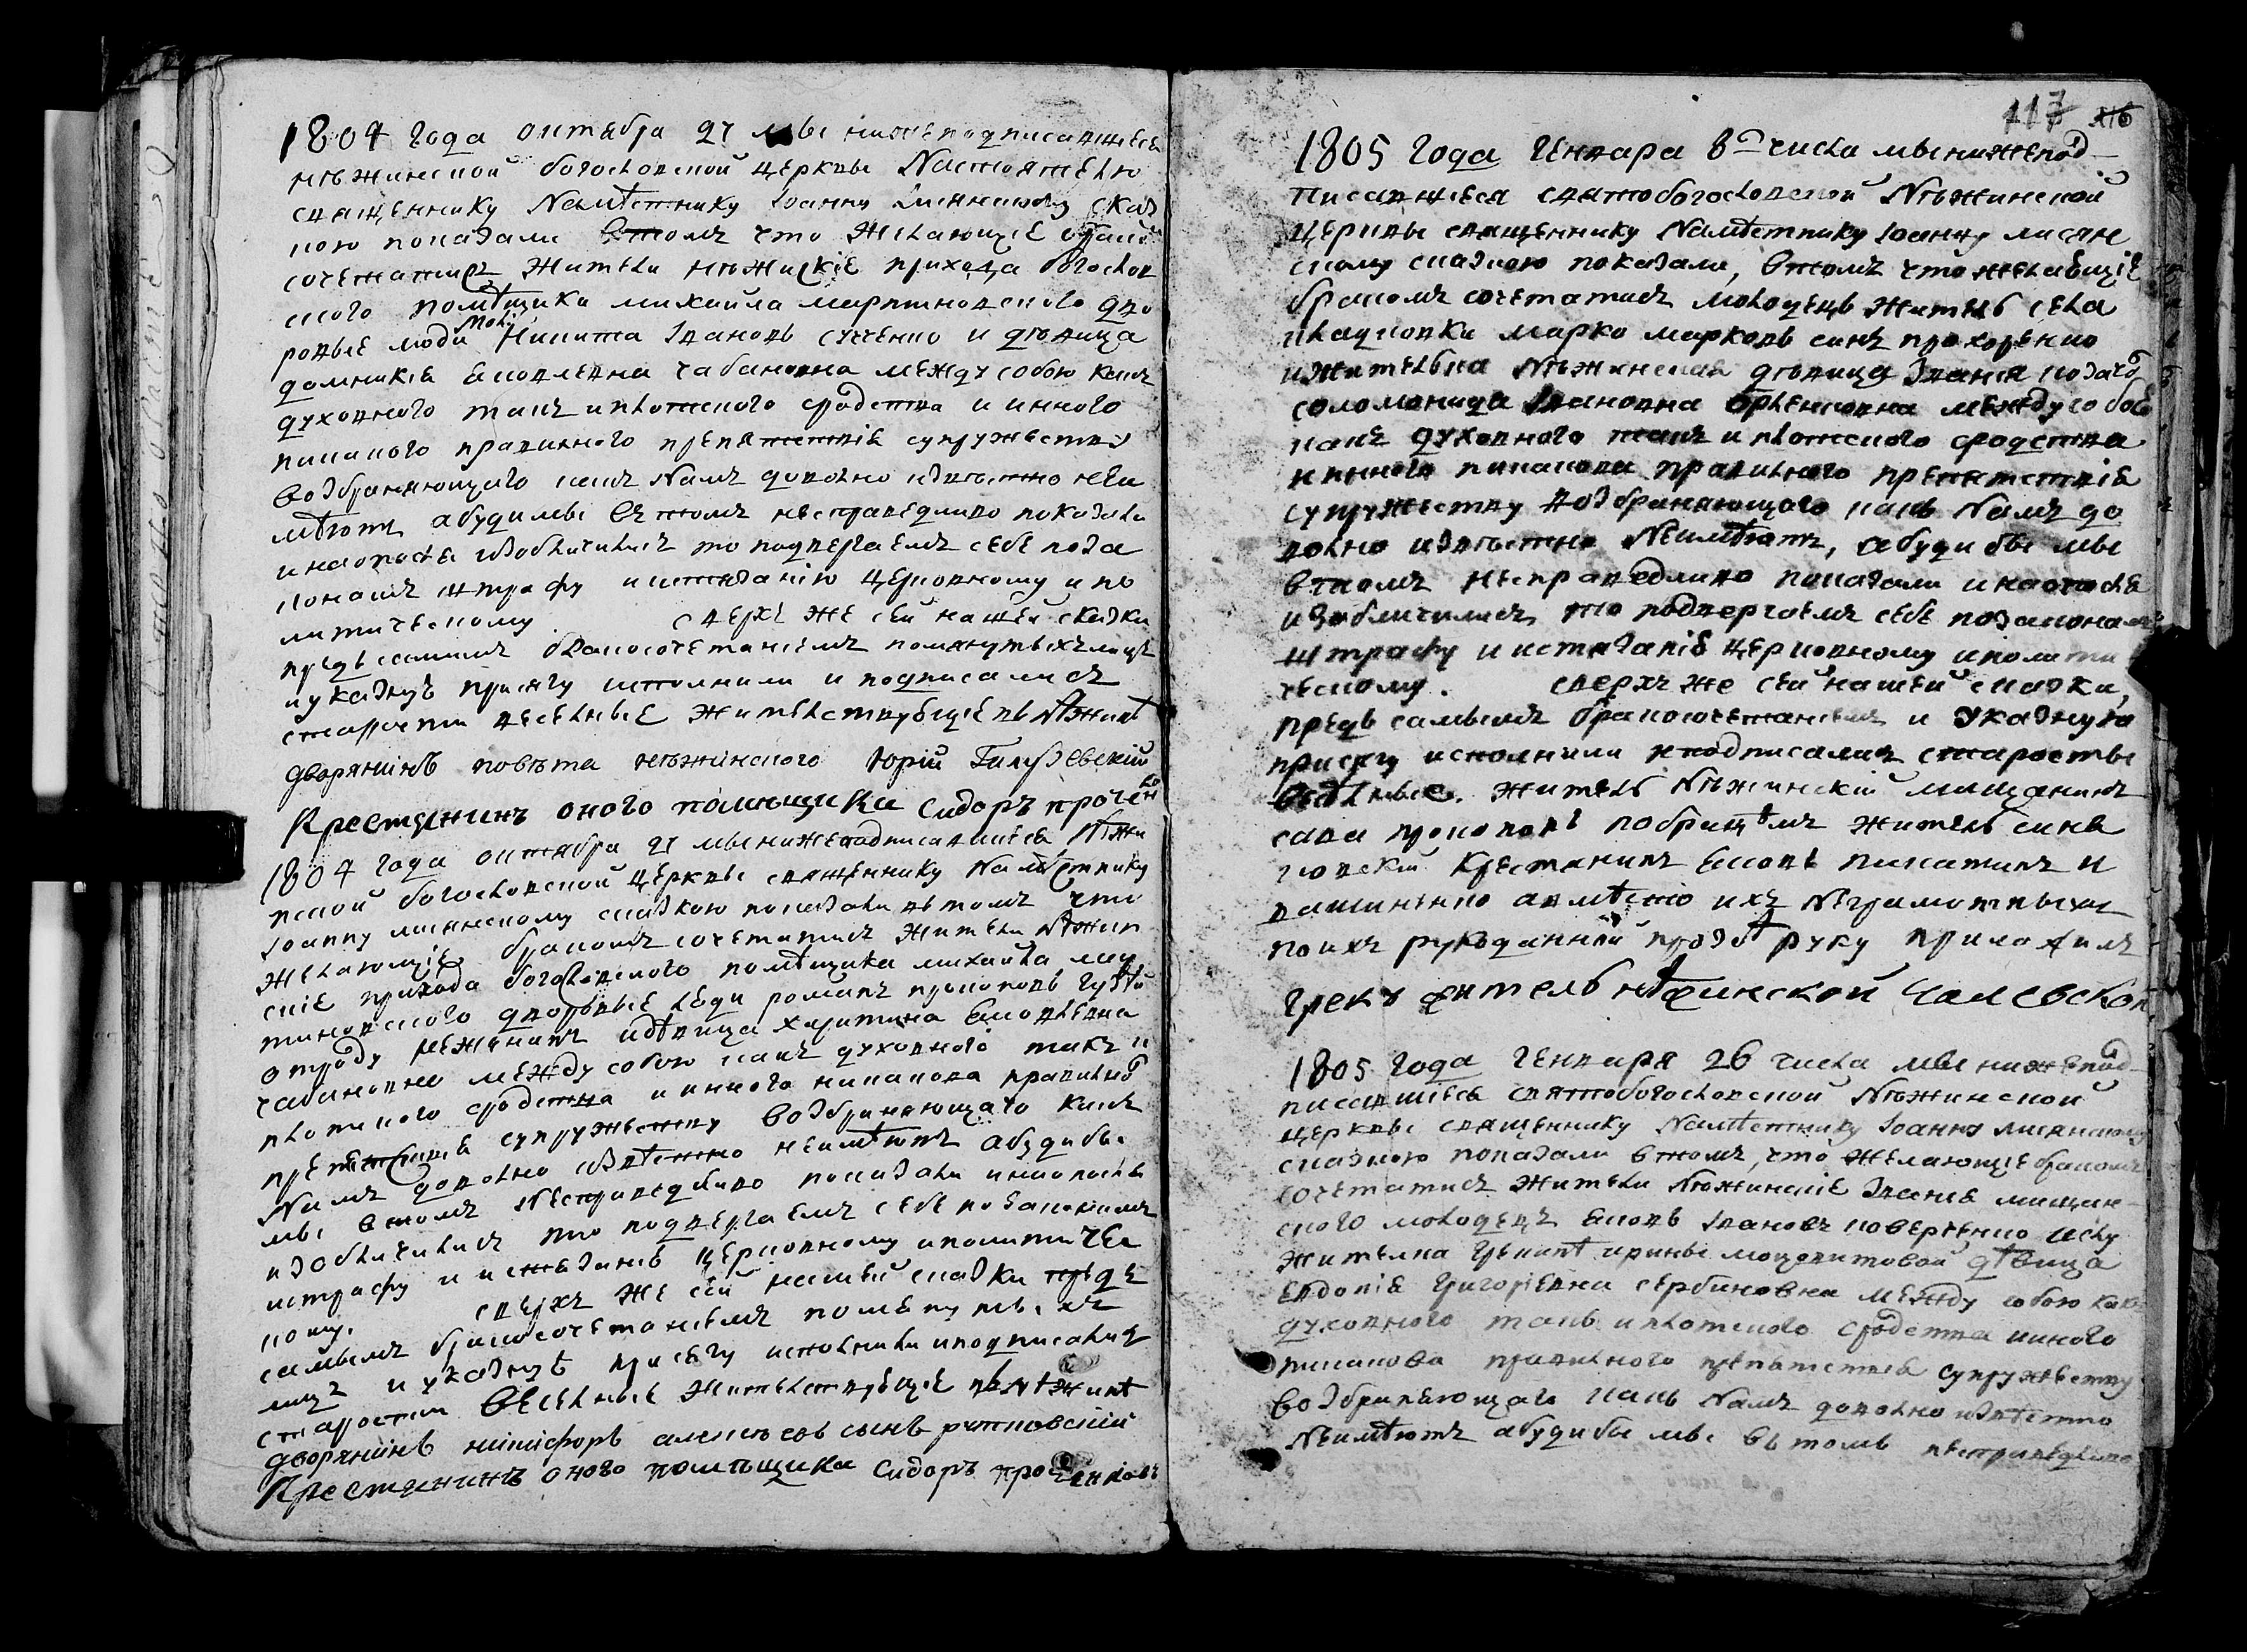 1804 года октября 27 мы нижеподписавшиеся
нѣжинской богословской церквы настоятелю
священнику намѣстнику Іоанну Лисянскому сказ
кою показали втомъ что желающіе брако
сочетатись жители нѣжинскіе прихода богослов
ского помѣщика михайла мартиновского дво
ровые люди мол: Никита Івановъ сученко и дѣвица
домникія Яковлевна чабановна между собою какъ
духовного такъ и плотского сродства и инного
никакого правилного препятствія супружеству
возбраняющаго какъ намъ доволно извѣстно неи
мѣютъ абуди мы втомъ несправедливо показали
инаопослѣ изобличились то подвергаемъ себе поза
кономъ штрафу иистязанію церковному и по
литическому сверхъ же сей нашей сказки
предъ самимъ бракосочетаніемъ помянутыхъ лицъ
иуказную присягу исполнили и подписались
старости веселные жителствующіе въ Нѣжинѣ
дворянинъ повѣта нѣжинского Юрій Галузевскій
Крестянинъ оного помѣщика Сидоръ проченко
1804 года октября 27 мы нижеподписавшиеся Нѣжи
нской богословской церквы священнику намѣстнику
Іоанну лисянскому сказкою показали втомъ что
желающіе бракомъ сочетатись жители Нѣжин
скіе прихода богословского помѣщика михайла мар
тиновского дворовые люди романъ прокоповъ
отроду режениемъ идѣвица харитина Яковлевна
чабановна между собою какъ духовного такъ и
плотского сродства и инного никакова правилного
препятствія супружеству возбраняющаго какъ
намъ доволно извѣстно неимѣютъ абудибы
мы втомъ несправедливо показали инаопослѣ
изобличились то подвергаемъ себе позаконамъ
штрафу и истязанію церковному иполитичес
кому. сверхъ же сей нашей сказки предъ
самымъ бракосочетаніемъ помянутыхъ
лицъ и указную присягу исполнили иподписались
старости веселные жителствующіе въ Нѣжинѣ
дворянинъ никифоръ алексѣевъ сынъ ритовскій
Крестянинъ оного помѣщика Сидоръ проченковъ
117 116
1805 года Генвара 8го числа мы нижепод-
писавшиеся святобогословской Нѣжинской
церквы священнику намѣстнику Іоанну лисян
скому сказкою показали, втомъ что желающіе
бракомъ сочетатись молодецъ житель села
плацковки марко марковъ синъ прохоренко
ижителька Нѣжинская дѣвица званія козачо
соломонида Івановна между собою
какъ духовного такъ и плотского сродства
и инного никакова правилного препятствія
супружеству возбраняющаго какъ намъ до
волно извѣстно Неимѣютъ, абуди бы мы
втомъ несправедливо показали инаопослѣ
изобличились, то подвергаемъ себе позаконамъ
штрафу и истязанію церковному иполити
ческому. сверхъ же сей нашей сказки,
предъ самымъ бракосочетаніемъ и указную
присягу исполнили иподписались старосты
веселные. житель Нѣжинскій мищанинъ
сава прокоповъ житель синя
ковскій крестянинъ Яковъ никитинъ и
вмѣсто ихъ неграмотныхъ
по ихъ рукоданной прозбѣ руку приложилъ
грекъ житель нѣжинской
1805 года Генваря 26 числа мы нижепод-
писавшиеся святобогословской Нѣжинской
церквы священнику намѣстнику Іоанну лисянскому
сказкою показали втомъ, что желающіе бракомъ
сочетатись жители Нѣжинскіе званія мищан-
ского молодецъ Яковъ Івановъ
жителка Грекинѣ ирины дѣвица
Евдокія Григоріевна сербиновна между собою какъ
духовного такъ и плотского сродства иинного
никакова правилного препятствія супружеству
возбраняющаго какъ намъ доволно извѣстно
Неимѣютъ абудибы мы въ томъ несправедливо